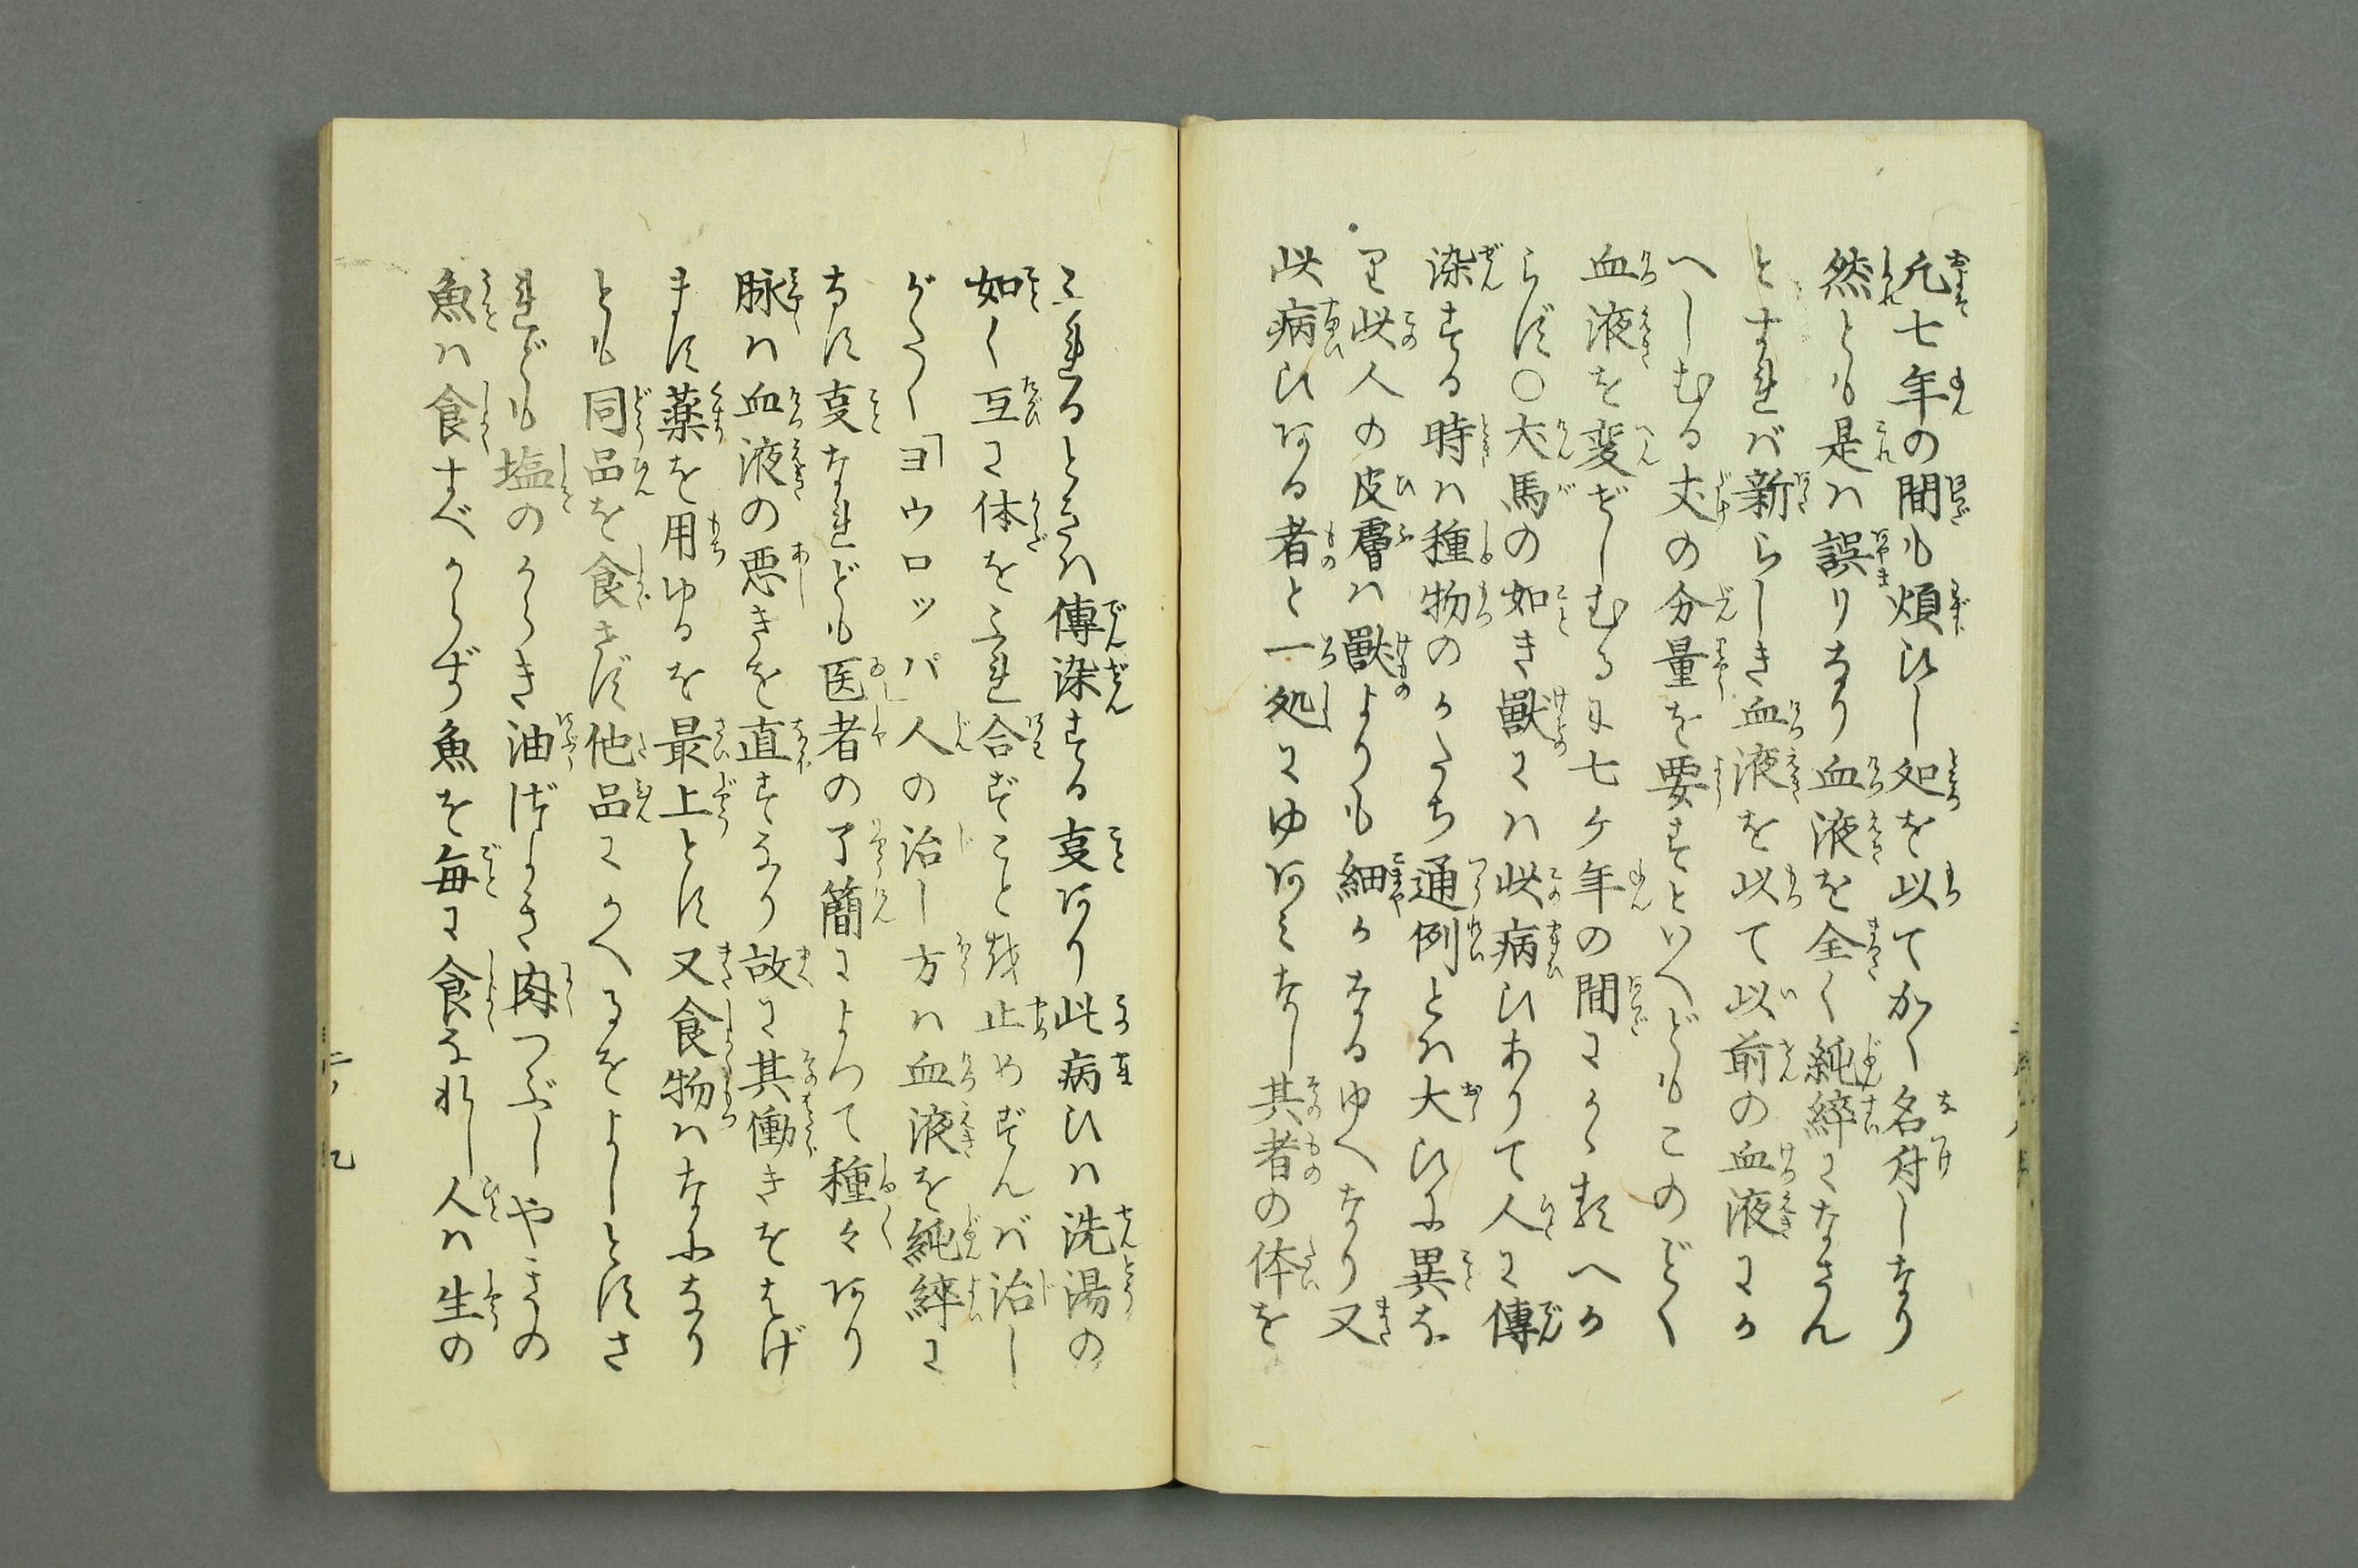 凡七年の間も煩ひし処を以てかく名付しなり
然とも是ハ誤りなり血液を全く純粋になさん
とすれバ新らしき血液を以て以前の血液にか
へしむる丈の分量を要すといへどもこのごとく
血液を変ぜしむるに七ケ年の間にかゝるべか
らず〇犬馬の如き獣にハ此病ひありて人に傳
染する時ハ種物のかたち通例とハ大ひに異な
り此人の皮膚ハ獣よりも細かなるゆへなり又
此病ひある者と一処にゆあみなし其者の体を
ふれるときハ傳染する事あり此病ひハ洗湯の
如く互に体をふれ合ずこと越止めずんバ治し
がたく「ヨウロッパ」人の治し方ハ血液を純粋に
なす事なれども医者の了簡によつて種々あり
脉ハ血液の悪きを直すなり故に其働きをまげ
ます薬を用ゆるを最上とす又食物ハなふなり
とも同品を食さず他品にかへるをよしとすさ
れども塩のからき油ぎよき肉つぶしやきの
魚ハ食すべからず魚を毎に食なれし人ハ生の